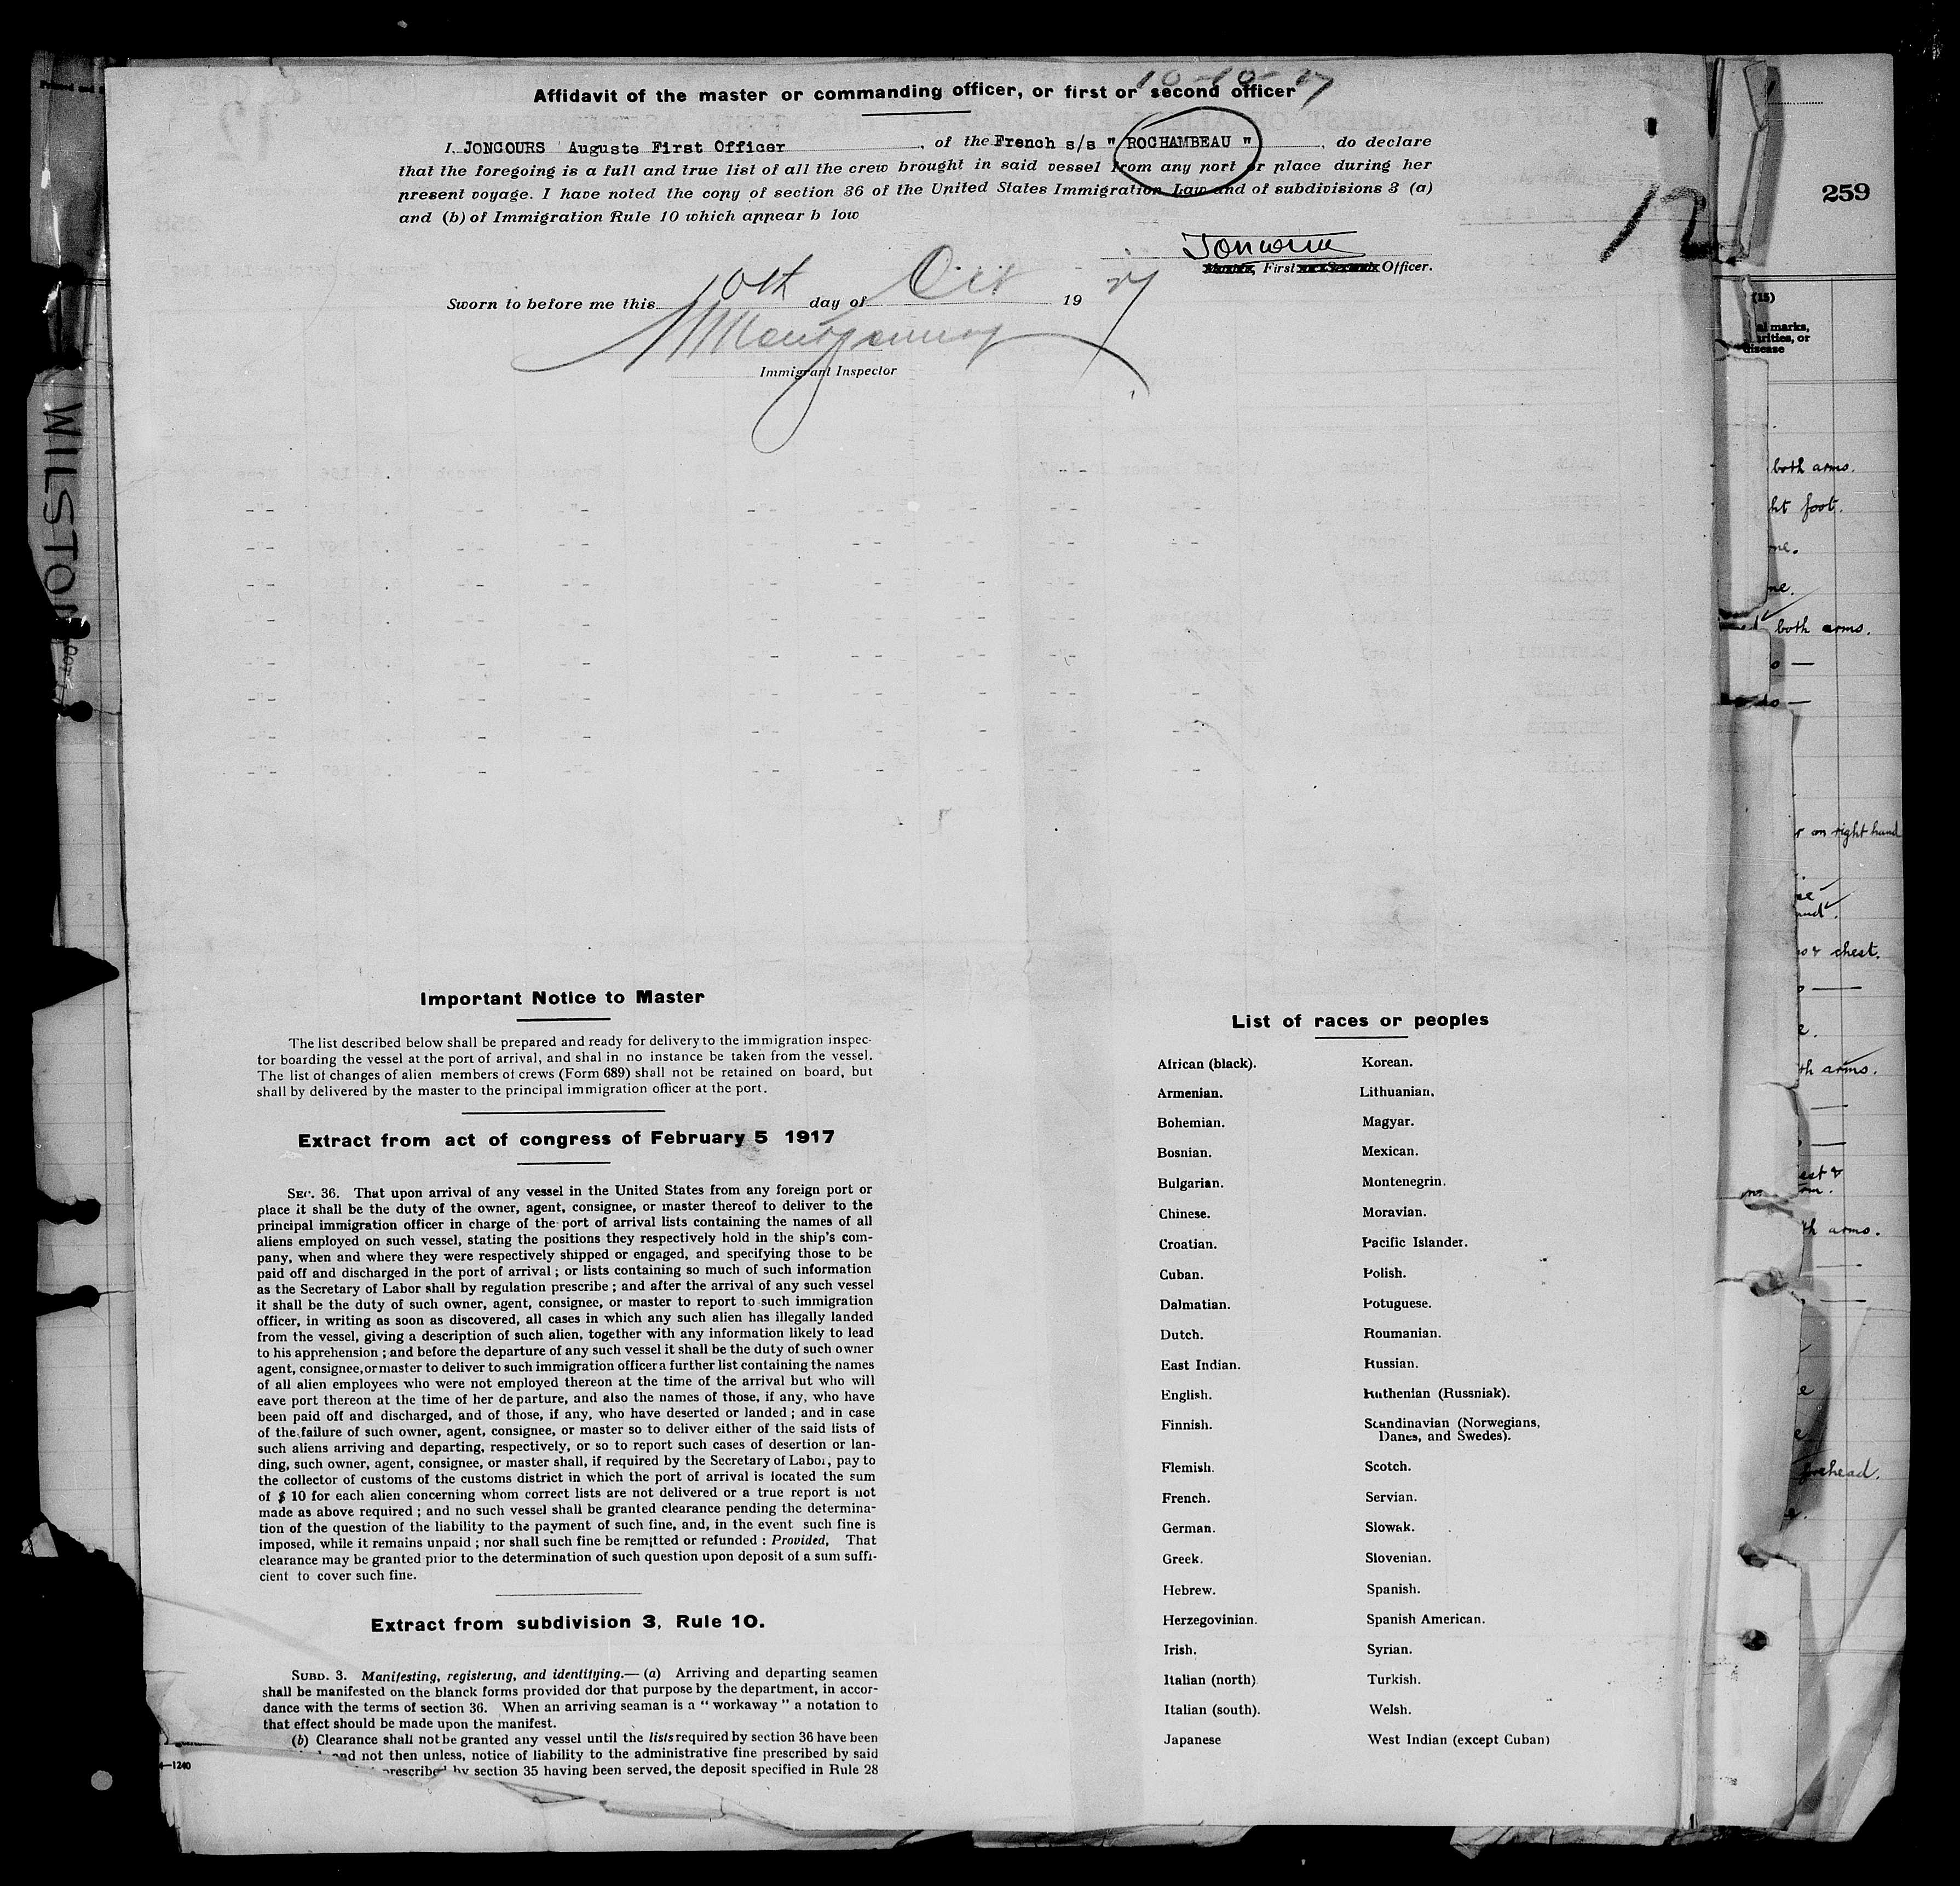 10-10-27
Affidavit of the master or commanding officer, or first or second officer
I, JONCOURS Auguste First Officer , of the French s/s " ROCHAMBEAU " , do declare
that the foregoing is a full and true list of all the crew brought in said vessel from any port or place during her
present voyage. I have noted the copy of section 36 of the United States Immigration Law and of subdivisions 3 (a)
and (b) of Immigration Rule 10 which appear b low
12
259
Master, First or Second Officer.
Sworn to before me this 10th day of Oct 19 27
Montgomery
Immigrant Inspector
WILSTON
(15)
al marks,
arities, or
disease
both arms.
ht foot.
both arms.
on right hand
chest.
arms.
arms.
forehead.
Important Notice to Master
The list described below shall be prepared and ready for delivery to the immigration inspec-
tor boarding the vessel at the port of arrival, and shal in no instance be taken from the vessel.
The list of changes of alien members of crews (Form 689) shall not be retained on board, but
shall by delivered by the master to the principal immigration officer at the port.
Extract from act of congress of February 5 1917
SEC. 36. That upon arrival of any vessel in the United States from any foreign port or
place it shall be the duty of the owner, agent, consignee, or master thereof to deliver to the
principal immigration officer in charge of the port of arrival lists containing the names of all
aliens employed on such vessel, stating the positions they respectively hold in the ship's com-
pany, when and where they were respectively shipped or engaged, and specifying those to be
paid off and discharged in the port of arrival ; or lists containing so much of such information
as the Secretary of Labor shall by regulation prescribe ; and after the arrival of any such vessel
it shall be the duty of such owner, agent, consignee, or master to report to such immigration
officer, in writing as soon as discovered, all cases in which any such alien has illegally landed
from the vessel, giving a description of such alien, together with any information likely to lead
to his apprehension ; and before the departure of any such vessel it shall be the duty of such owner
agent, consignee, or master to deliver to such immigration officer a further list containing the names
of all alien employees who were not employed thereon at the time of the arrival but who will
eave port thereon at the time of her departure, and also the names of those, if any, who have
been paid off and discharged, and of those, if any, who have deserted or landed ; and in case
of the failure of such owner, agent, consignee, or master so to deliver either of the said lists of
such aliens arriving and departing, respectively, or so to report such cases of desertion or lan-
ding, such owner, agent, consignee, or master shall, if required by the Secretary of Labor, pay to
the collector of customs of the customs district in which the port of arrival is located the sum
of $ 10 for each alien concerning whom correct lists are not delivered or a true report is not
made as above required ; and no such vessel shall be granted clearance pending the determina-
tion of the question of the liability to the payment of such fine, and, in the event such fine is
imposed, while it remains unpaid ; nor shall such fine be remitted or refunded : Provided, That
clearance may be granted prior to the determination of such question upon deposit of a sum suffi-
cient to cover such fine.
Extract from subdivision 3, Rule 10.
SUBD. 3. Manifesting, registering, and identifying.— (a) Arriving and departing seamen
shall be manifested on the blanck forms provided dor that purpose by the department, in accor-
dance with the terms of section 36. When an arriving seaman is a " workaway " a notation to
that effect should be made upon the manifest.
(b) Clearance shall not be granted any vessel until the lists required by section 36 have been
and not then unless, notice of liability to the administrative fine prescribed by said
prescribed by section 35 having been served, the deposit specified in Rule 28
—1240
List of races or peoples
African (black). Korean.
Armenian. Lithuanian.
Bohemian. Magyar.
Bosnian. Mexican.
Bulgarian. Montenegrin.
Chinese. Moravian.
Croatian. Pacific Islander.
Cuban. Polish.
Dalmatian. Potuguese.
Dutch. Roumanian.
East Indian. Russian.
English. Ruthenian (Russniak).
Finnish. Scandinavian (Norwegians,
Danes, and Swedes).
Flemish. Scotch.
French. Servian.
German. Slowak.
Greek. Slovenian.
Hebrew. Spanish.
Herzegovinian. Spanish American.
Irish. Syrian.
Italian (north) Turkish.
Italian (south). Welsh.
Japanese West Indian (except Cuban)